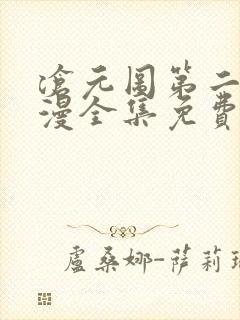 滄元圖第二
漫全集免費
盧桑娜-薩莉